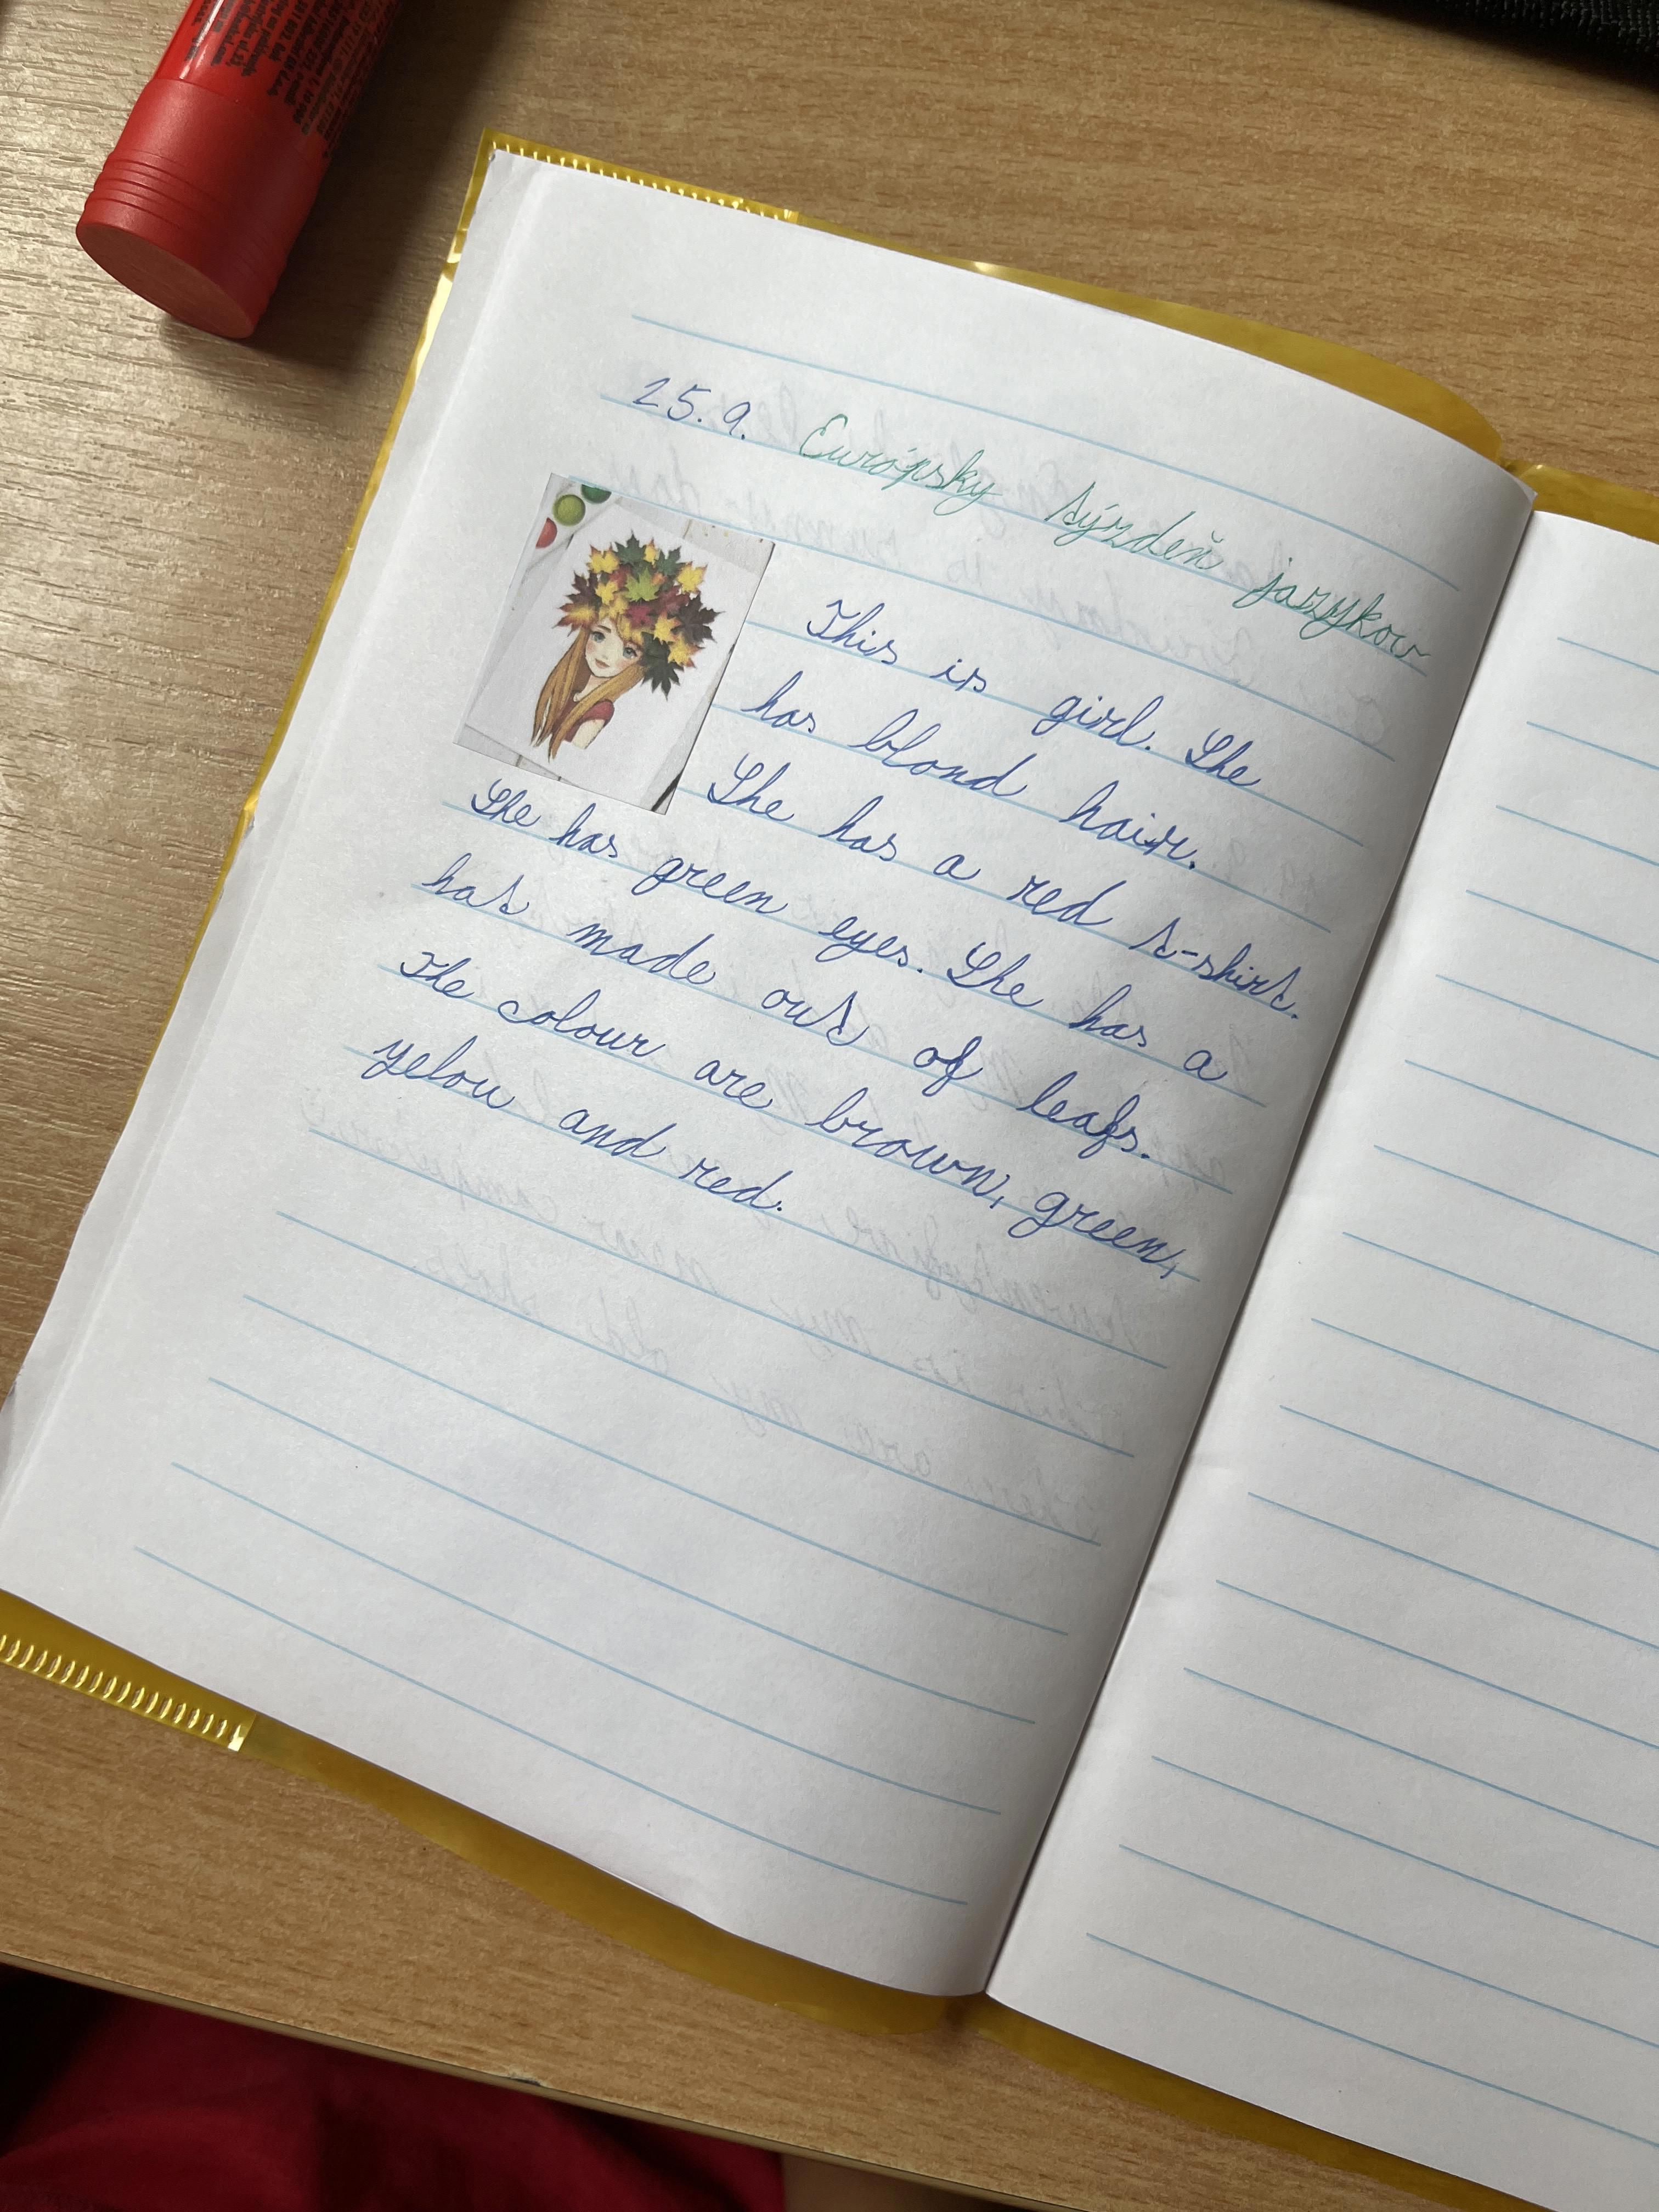 25. 9. Európsky týzdeň jazykov
This is girl. She
has blond hair.
She has a red t-shirt.
She has green eyes. She has a
hat made out of leafs.
The colour are brown, green,
yelow and red.